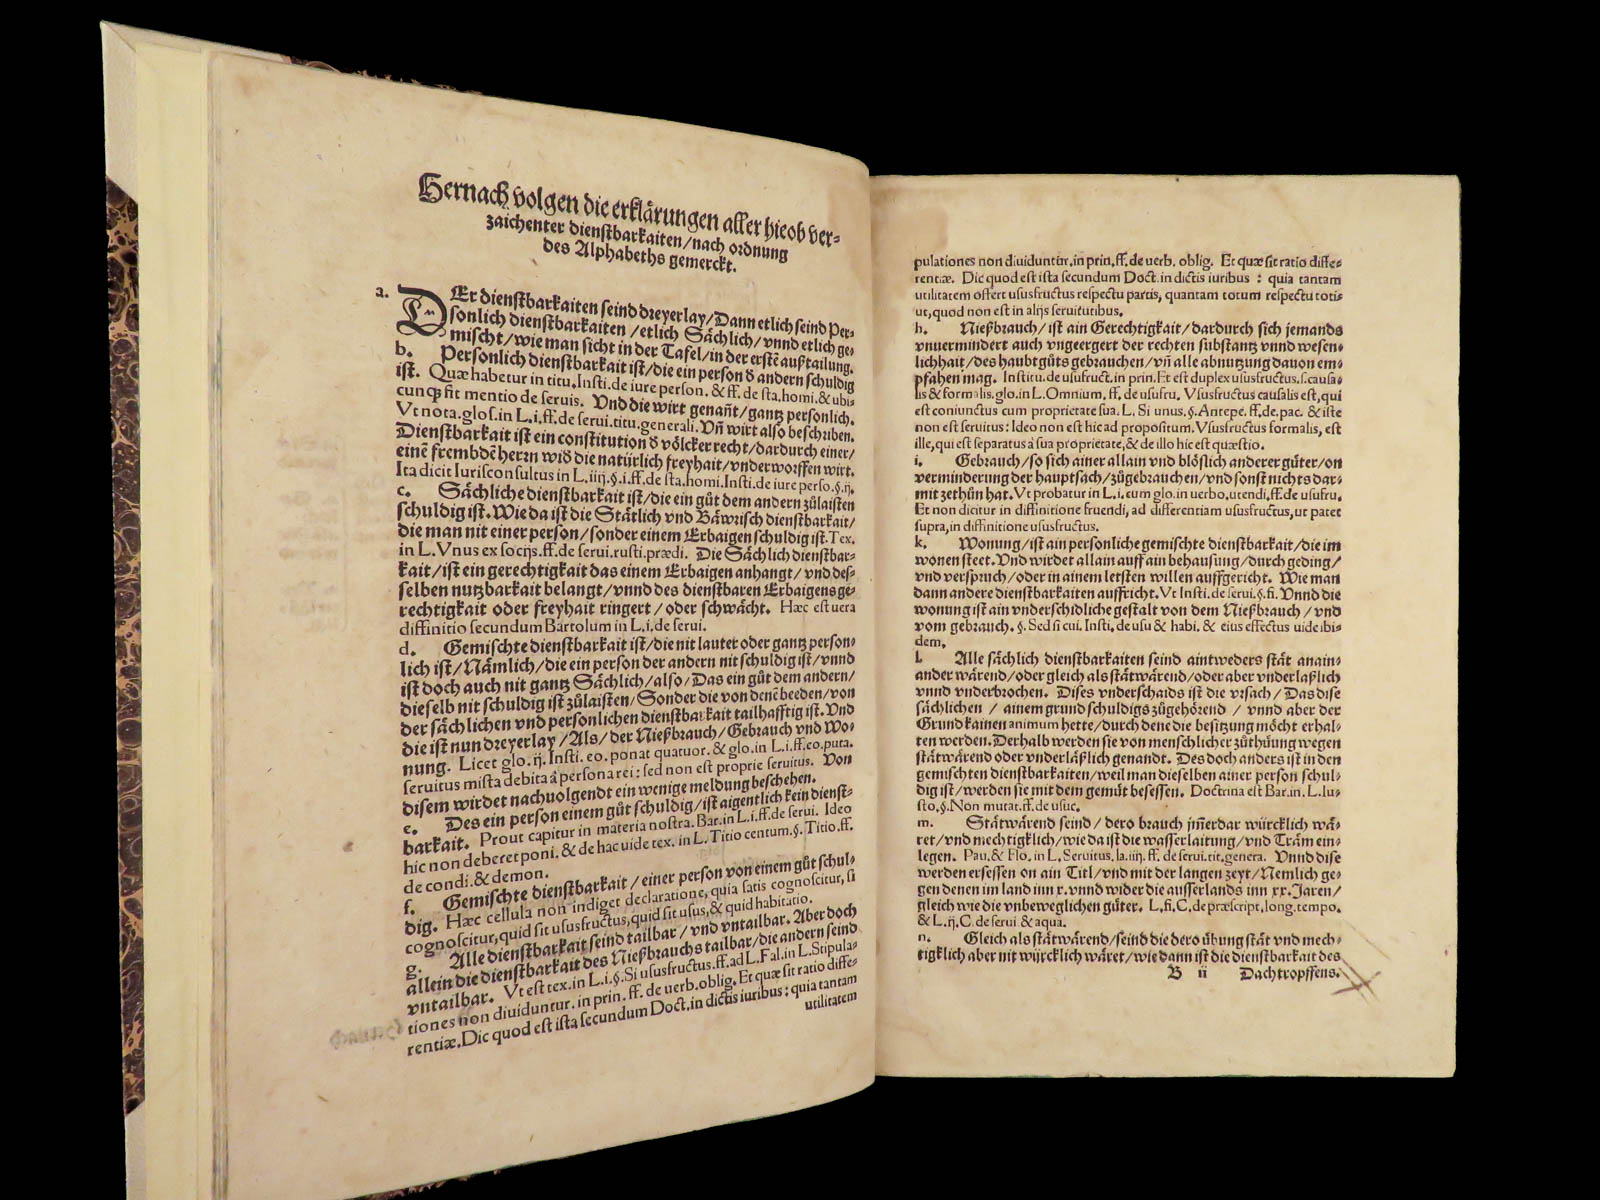 Hernach volgen die erklärungen aller hieob ver-
zaichenter dienstbarkaiten/nach ordnung
des Alphabeths gemerckt.
a. DEr dienstbarkaiten seind dreyerlay/Dann etlich seind Per-
sonlich dienstbarkaiten/etlich Sächlich/vnnd etlich ge-
mischt/wie man sicht in der Tafel/in der erstẽ außtailung.
b. Personlich dienstbarkait ist/die ein person ð andern schuldig
ist. Quæ habetur in titu. Insti. de iure person. & ff. de sta. homi. & ubi-
cunqꝫ fit mentio de seruis. Vnd die wirt genañt/gantz personlich.
Vt nota. glos. in L. i. ff. de serui. titu. generali. Vñ wirt also beschriben.
Dienstbarkait ist ein constitution ð völcker recht/dardurch einer/
einẽ frembdẽ herrn wið die natürlich freyhait/vnderworffen wirt.
Ita dicit Iurisconsultus in L. iiij. §. i. ff. de sta. homi. Insti. de iure perso. §. ij.
c. Sächliche dienstbarkait ist/die ein gůt dem andern zůlaisten
schuldig ist. Wie da ist die Stätlich vnd Bäwrisch dienstbarkait/
die man nit einer person/sonder einem Erbaigen schuldig ist. Tex.
in L. Vnus ex socijs. ff. de serui. rusti. prædi. Die Sächlich dienstbar-
kait/ist ein gerechtigkait das einem Erbaigen anhangt/vnd des-
selben nutzbarkait belangt/vnnd des dienstbaren Erbaigens ge-
rechtigkait oder freyhait ringert/oder schwächt. Hæc est uera
diffinitio secundum Bartolum in L. i. de serui.
d. Gemischte dienstbarkait ist/die nit lauter oder gantz person-
lich ist/Nämlich/die ein person der andern nit schuldig ist/vnnd
ist doch auch nit gantz Sächlich/also/Das ein gůt dem andern/
dieselb nit schuldig ist zůlaisten/Sonder die von denẽ beeden/von
der sächlichen vnd personlichen dienstbarkait tailhafftig ist. Vnd
die ist nun dreyerlay/Als/der Nießbrauch/Gebrauch vnd Wo-
nung. Licet glo. ij. Insti. eo. ponat quatuor. & glo. in L. i. ff. eo. puta.
seruitus mista debita à persona rei: sed non est proprie seruitus. Von
disem wirdet nachuolgendt ein wenige meldung beschehen.
e. Des ein person einem gůt schuldig/ist aigentlich kein dienst-
barkait. Prout capitur in materia nostra. Bar. in L. i. ff. de serui. Ideo
hic non deberet poni. & de hac uide tex. in L. Titio centum. §. Titio. ff.
de condi. & demon.
f. Gemischte dienstbarkait/einer person von einem gůt schul-
dig. Hæc cellula non indiget declaratione, quia satis cognoscitur, si
cognoscitur, quid sit ususfructus, quid sit usus, & quid habitatio.
g. Alle dienstbarkait seind tailbar/vnd vntailbar. Aber doch
allein die dienstbarkait des Nießbrauchs tailbar/die andern seind
vntailbar. Vt est tex. in L. i. §. Si ususfructus. ff. ad L. Fal. in L. Stipula-
tiones non diuiduntur. in prin. ff. de uerb. oblig. Et quæ sit ratio diffe-
rentiæ. Dic quod est ista secundum Doct. in dictis iuribus: quia tantam
utilitatem
pulationes non diuiduntur. in prin. ff. de uerb. oblig. Et quæ sit ratio diffe-
rentiæ. Dic quod est ista secundum Doct. in dictis iuribus: quia tantam
utilitatem offert ususfructus respectu partis, quantam totum respectu toti-
us, quod non est in alijs seruitutibus.
h. Nießbrauch/ist ain Gerechtigkait/dardurch sich jemands
vnuermindert auch vngeergert der rechten substantz vnnd wesen-
lichhait/des haubtgůts gebrauchen/vñ alle abnutzung dauon em-
pfahen mag. Institu. de usufruct. in prin. Et est duplex ususfructus. s. causa-
lis & formalis. glo. in L. Omnium. ff. de usufru. Vsusfructus causalis est, qui
est coniunctus cum proprietate sua. L. Si unus. §. Antepe. ff. de. pac. & iste
non est seruitus: Ideo non est hic ad propositum. Vsusfructus formalis, est
ille, qui est separatus à sua proprietate, & de illo hic est quæstio.
i. Gebrauch/so sich ainer allain vnd blöslich anderer güter/on
verminderung der hauptsach/zůgebrauchen/vnd sonst nichts dar-
mit zethůn hat. Vt probatur in L. i. cum glo. in uerbo. utendi. ff. de usufru.
Et non dicitur in diffinitione fruendi, ad differentiam ususfructus, ut patet
supra, in diffinitione ususfructus.
k. Wonung/ist ain personliche gemischte dienstbarkait/die im
wonen steet. Vnd wirdet allain auff ain behausung/durch geding/
vnd verspruch/oder in ainem letsten willen auffgericht. Wie man
dann andere dienstbarkaiten auffricht. Vt Insti. de serui. §. fi. Vnnd die
wonung ist ain vnderschidliche gestalt von dem Nießbrauch/vnd
vom gebrauch. §. Sed si cui. Insti. de usu & habi. & eius effectus uide ibi-
dem.
l. Alle sächlich dienstbarkaiten seind aintweders stät anain-
ander wärend/oder gleich als stätwärend/oder aber vnderlaßlich
vnnd vnderbrochen. Dises vnderschaids ist die vrsach/Das dise
sächlichen/ainem grund schuldigs zůgehörend/vnnd aber der
Grund kainen animum hette/durch dene die besitzung möcht erhal-
ten werden. Derhalb werden sie von menschlicher zůthůung wegen
stätwärend oder vnderläßlich genandt. Des doch anders ist in den
gemischten dienstbarkaiten/weil man dieselben ainer person schul-
dig ist/werden sie mit dem gemüt besessen. Doctrina est Bar. in. L. Iu-
sto. §. Non mutat. ff. de usuc.
m. Stätwärend seind/dero brauch jm̃erdar würcklich wä-
ret/vnd mechtigklich/wie da ist die wasserlaitung/vnd Träm ein-
legen. Pau. & Flo. in L. Seruitus. la. iiij. ff. de serui. tit. genera. Vnnd dise
werden ersessen on ain Titl/vnd mit der langen zeyt/Nemlich ge-
gen denen im land inn x. vnnd wider die ausserlands inn xx. Jaren/
gleich wie die vnbeweglichen güter. L. fi. C. de præscript. long. tempo.
& L. ij. C. de serui & aqua.
n. Gleich als stätwärend/seind die dero übung stät vnd mech-
tigklich aber nit würcklich wäret/wie dann ist die dienstbarkait des
B ii Dachtropffens.